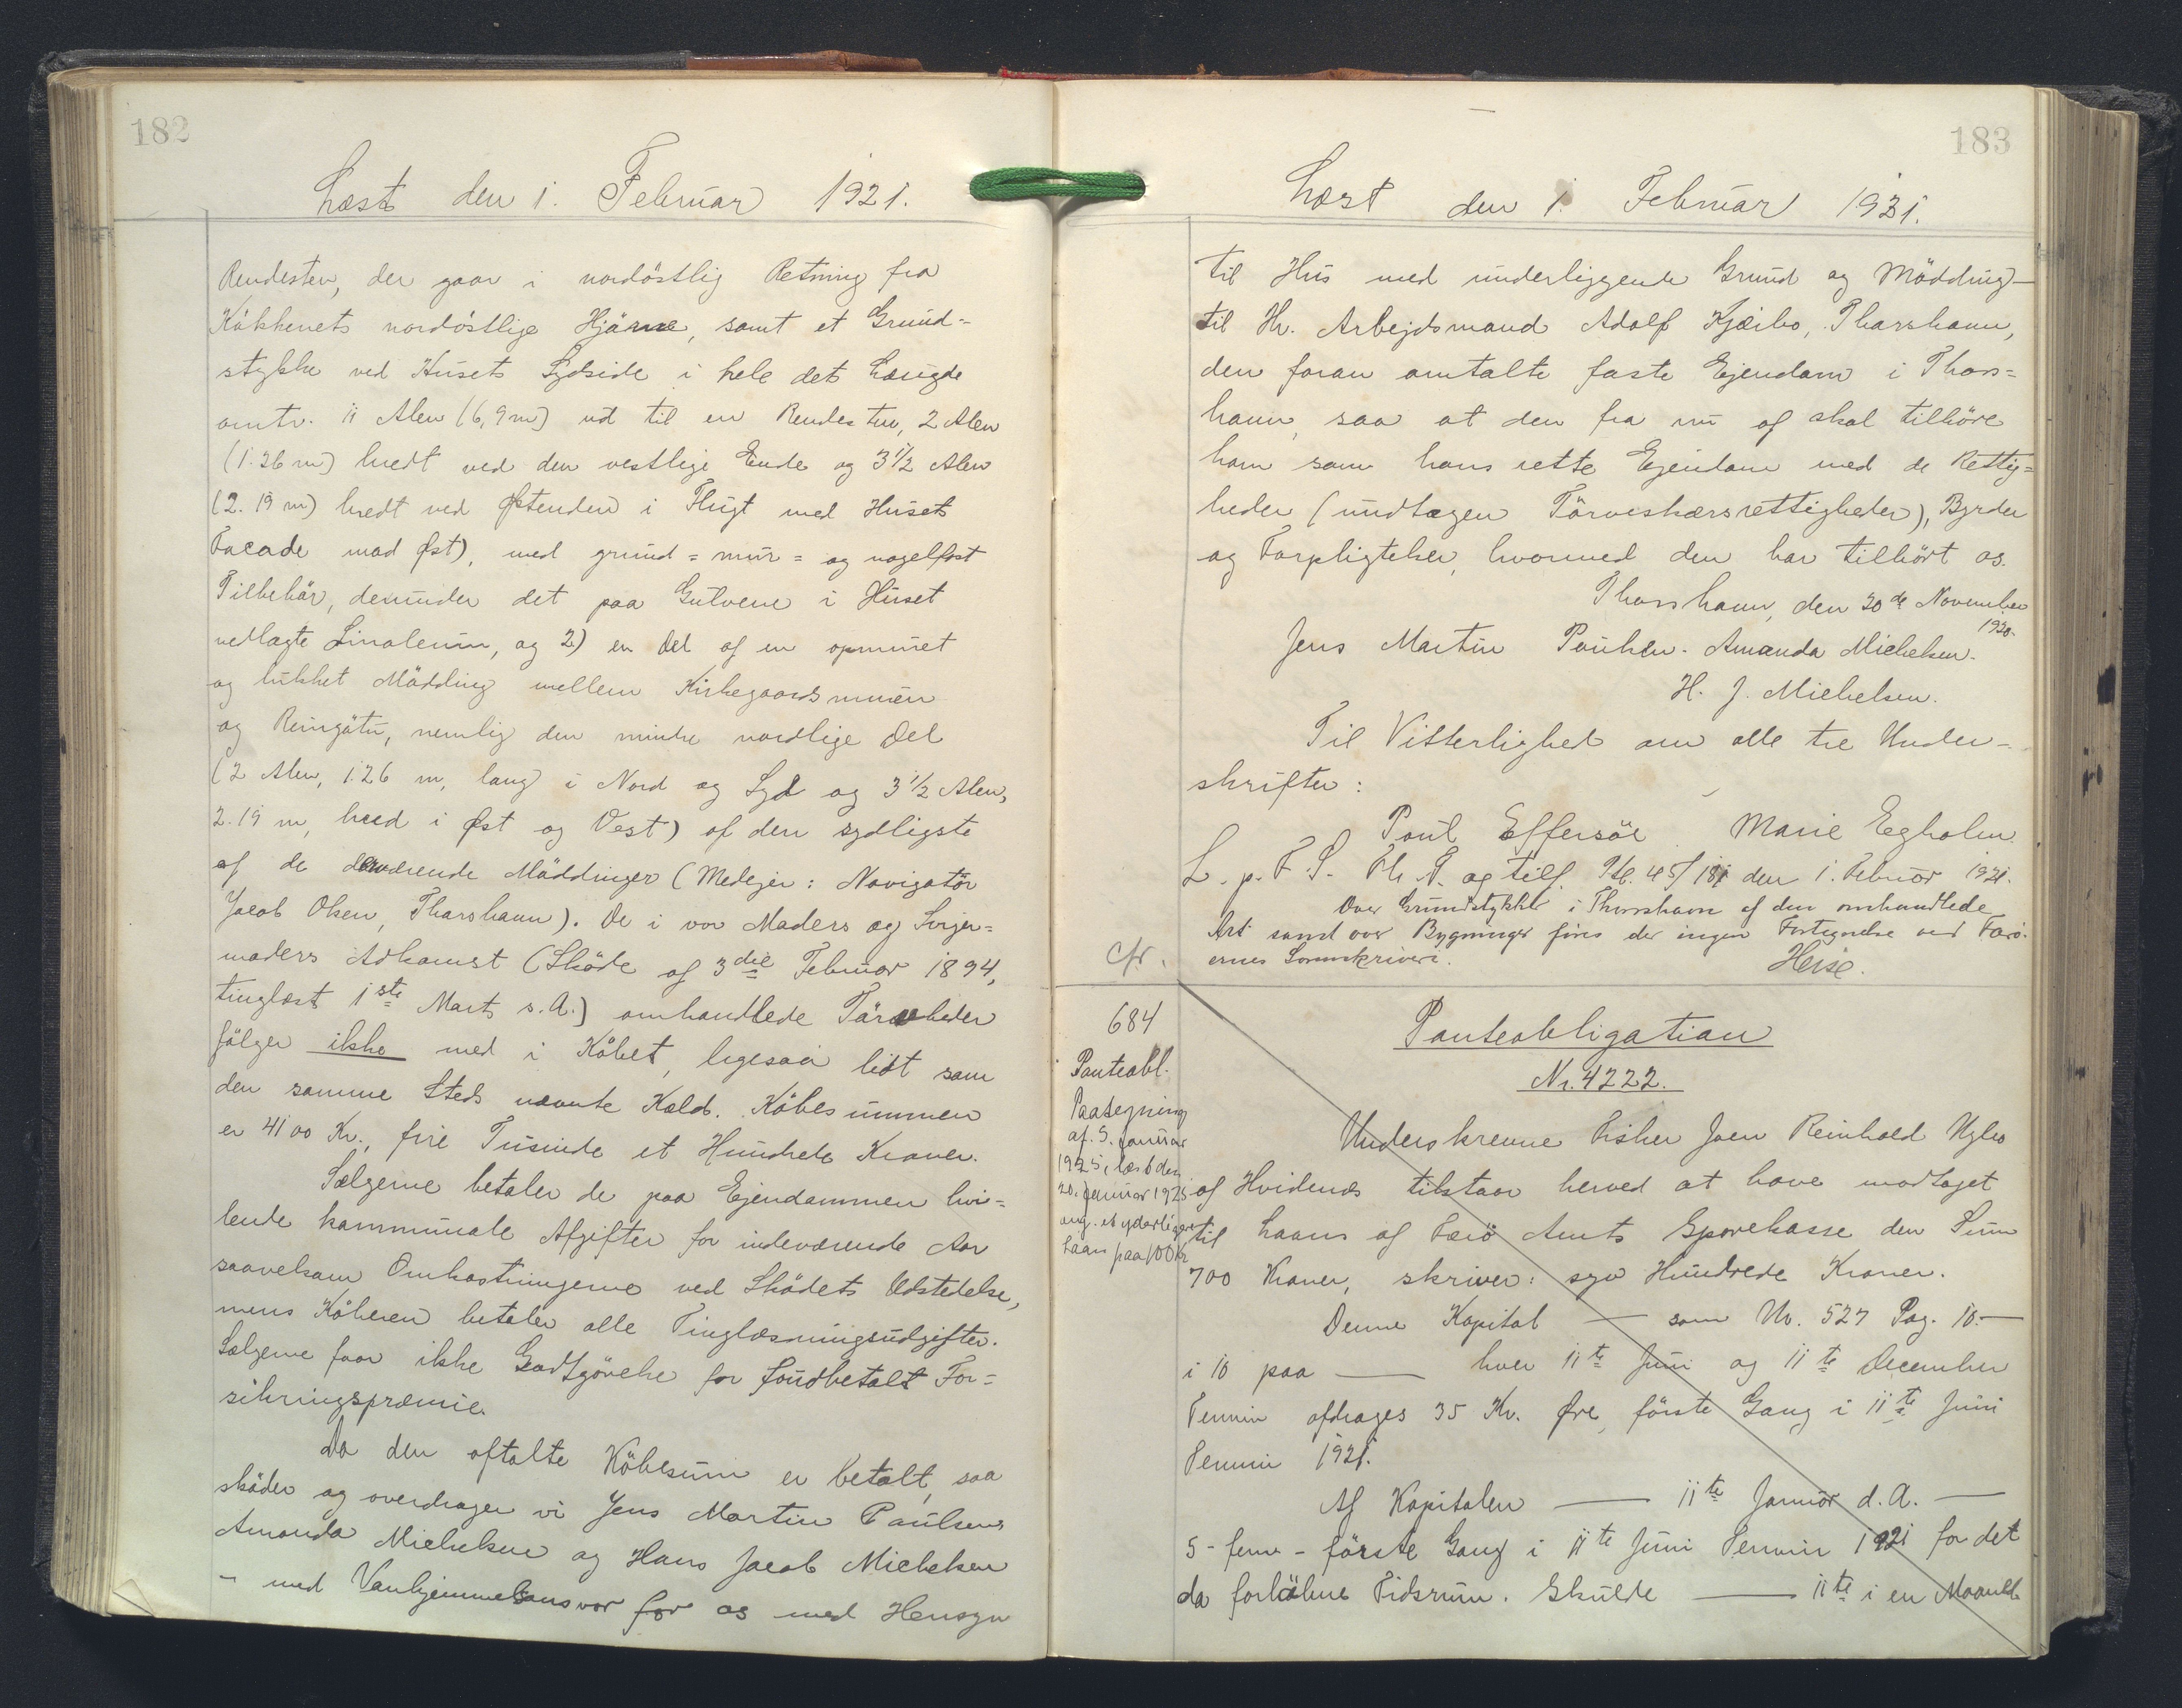 182
Læst den 1. Februar 1921.
Rendesten, der gaar i nordöstlig Retning fra
Kökkenets nordöstlige Hjörne, samt et Grund-
stykke ved Husets Sydside i hele det Længde
omtr. 11 Alen (6,9 m) ud til en Rendesten, 2 Alen
(1.26 m) bredt ved den vestlige Ende og 3 1/2 Alen
(2.19 m) bredt ved Østenden i Flugt med Husets
Facade mod Øst), med grund= mur= og nagelfast
Tilbehör, derunder det paa Gulvene i Huset
vedlagte Linoleum, og 2) en Del af en opmuret
og lukket Mödding mellem Kirkegaardsmuren
og Reingøtu, nemlig den mindre nordlige Del
(2 Alen, 1.26 m, lang i Nord og Syd og 3 1/2 Alen,
2.19 m, bred i Øst og Vest) af den sydligste
af de derværende Möddinger (Medejer: Navigatör
Jacob Olsen, Thorshavn). De i vor Moders og Svijer=
moders Adkomst (Sköde af 3die Februar 1894,
tinglæst 1ste Marts s.A.) omhandlede Törveheder
fölger ikke med i Köbet, ligesaa lidt som
den samme Steds nævnte Kæld. Köbesummen
er 4100 Kr., fire Tusinde et Hundrede Kroner.
Sælgerne betaler de paa Ejendommen hvi=
lende kommunale Afgifter for indeværende Aar
saavelsom Omkostningerne ved Sködets Udstedelse,
mens Köberen betaler alle Tinglæsningsudgifter.
Sælgerne faar ikke Godtgörelse for forudbetalt For=
sikringspræmie.
Da den aftalte Köbesum er betalt, saa
sköder og overdrager vi Jens Martin Paulsen,
Amanda Michelsen og Hans Jacob Michelsen
- med Vanhjemmelsansvar for os med Hensyn
183
Læst den 1. Februar 1921.
til Hus med underliggende Grund og Mödding -
til Hr. Arbejdsmand Adolf Kjærbo, Thorshavn,
den foran omtalte faste Ejendom i Thors=
havn, saa at den fra nu af skal tilhöre
ham som hans rette Ejendom med de Rettig=
heder (undtagen Törveskærsrettigheder), Byrder
og Forpligtelser, hvormed den har tilhört os.
Thorshavn, den 20de November
1920.
Jens Martin Poulsen. Amanda Michelsen.
H. J. Michelsen.
Til Vitterlighed om alle tre Under-
skrifter:
Poul Effersöe Marie Egholm
L. p. F. S. Th. A. og tilf. Ptb. 45/181 den 1. Februar 1921.
Over Grundstykker i Thorshavn af den omhandlede
Art samt over Bygninger föres der ingen Fortegnelse ved Færö-
ernes Sorenskriveri.
Heise.
Cfr.
684
Panteobl.
Paategning
af 5. Januar
1925, læst den
20. Januar 1925
ang. et yderligere
Laan paa 100 Kr
Panteobligation
Nr. 4222.
Underskrevne Fisker Joen Reinhold Nybo
af Hvidenæs tilstaar herved at have modtaget
til Laans af Færö Amts Sparekasse den Sum
700 Kroner, skriver: syv Hundrede Kroner.
Denne Kapital — som Nr. 527 Pag. 10. —
i 10 paa — hver 11te Juni og 11te December
Termin afdrages 35 Kr. Øre, förste Gang i 11te Juni
Termin 1921.
Af Kapitalen — 11te Januar d. A. —
5 - fem - förste Gang i 11te Juni Termin 1921 for det
da forlöbne Tidsrum. Skulde — 11te i en Maaneds